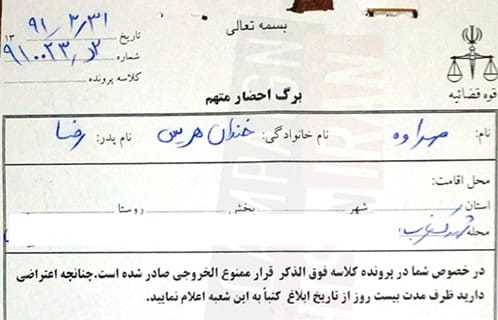 بسمه تعالی
تاریخ ۹۱/۲/۳۱ ۱۳
شماره
کلاسه پرونده
قوه قضائیه
برگ احضار متهم
نام: مهراوه نام خانوادگی: خندان هریس نام پدر: رضا
محل اقامت:
استان شهر بخش روستا
محله شهرک غرب
در خصوص شما در پرونده کلاسه فوق الذکر قرار ممنوع الخروجی صادر شده است.چنانچه اعتراضی
دارید ظرف مدت بیست روز از تاریخ ابلاغ کتباً به این شعبه اعلام نمایید.